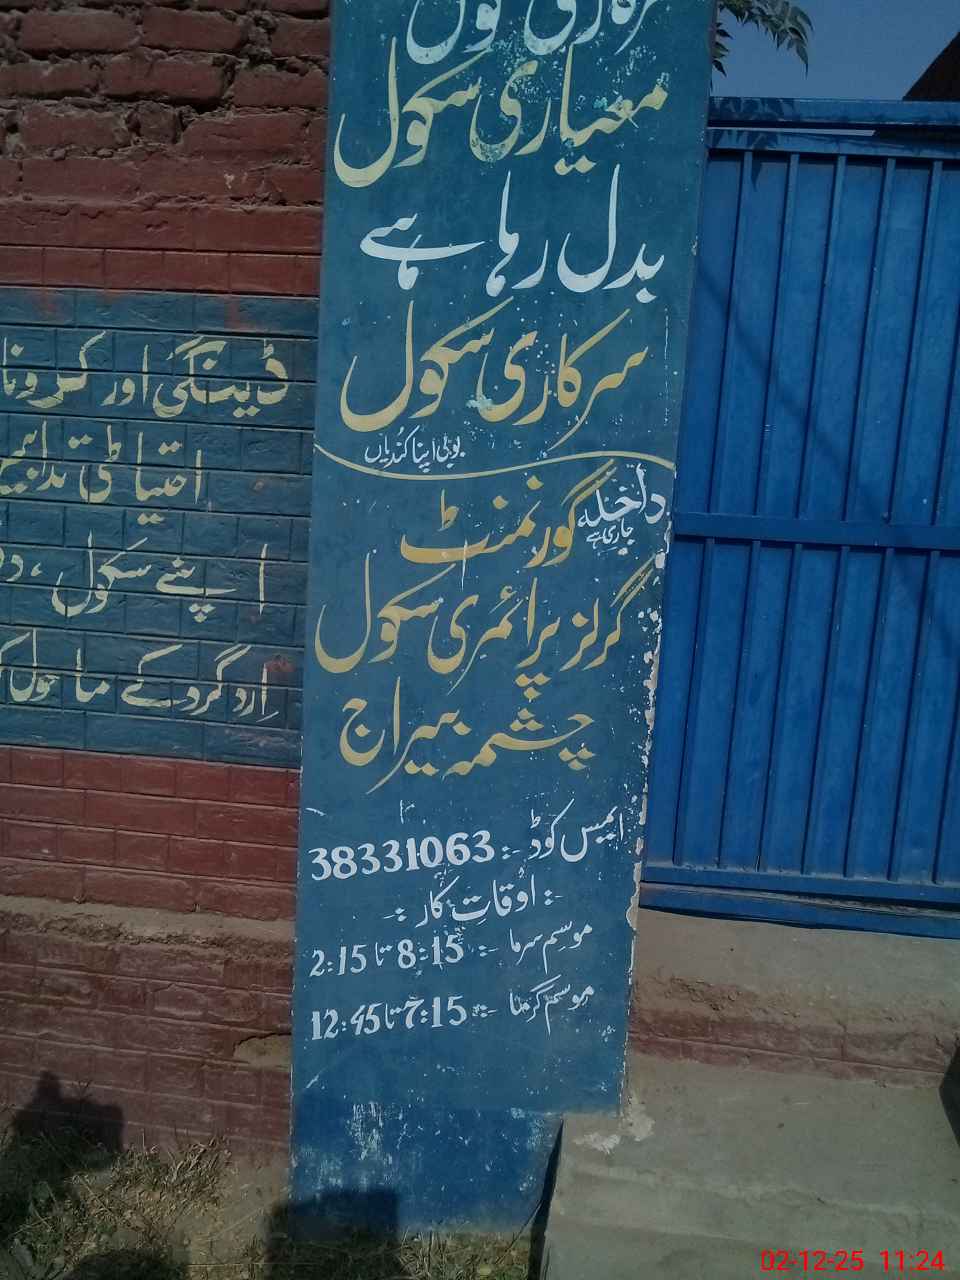 سرکاری سکول
معیاری سکول
بدل رہا ہے
سرکاری سکول
بوبی اپنا کُندیاں
داخلہ
جاری ہے
گورنمنٹ
گرلز پرائمری سکول
چشمہ بیراج
ایمیس کوڈ :- 38331063
-: اوقاتِ کار :-
موسم سرما :- 8:15 تا 2:15
موسم گرما :- 7:15 تا 12:45
ڈینگی اور کرونا
احتیاطی تدابیر
اپنے سکول، دف
اِردگرد کے ماحول ک
02-12-25 11:24